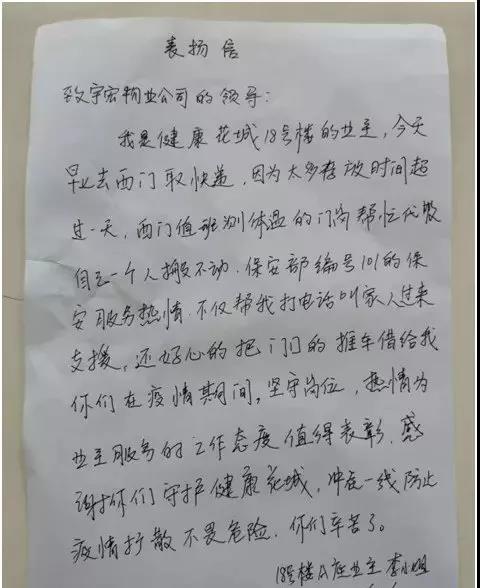 表扬信
致宇宏物业公司的领导:
我是健康花城18号楼的业主,今天
早上去西门取快递,因为太多存放时间超
过一天,西门值班测体温的门岗帮忙代收
自己一个人搬不动.保安部编号101的保
安服务热情.不仅帮我打电话叫家人过来
支援,还好心的把门口的推车借给我
你们在疫情期间,坚守岗位,热情为
业主服务的工作态度值得表彰.感
谢你们守护健康花城,冲在一线防止
疫情扩散不畏危险.你们辛苦了。
18号楼A座业主 李小姐